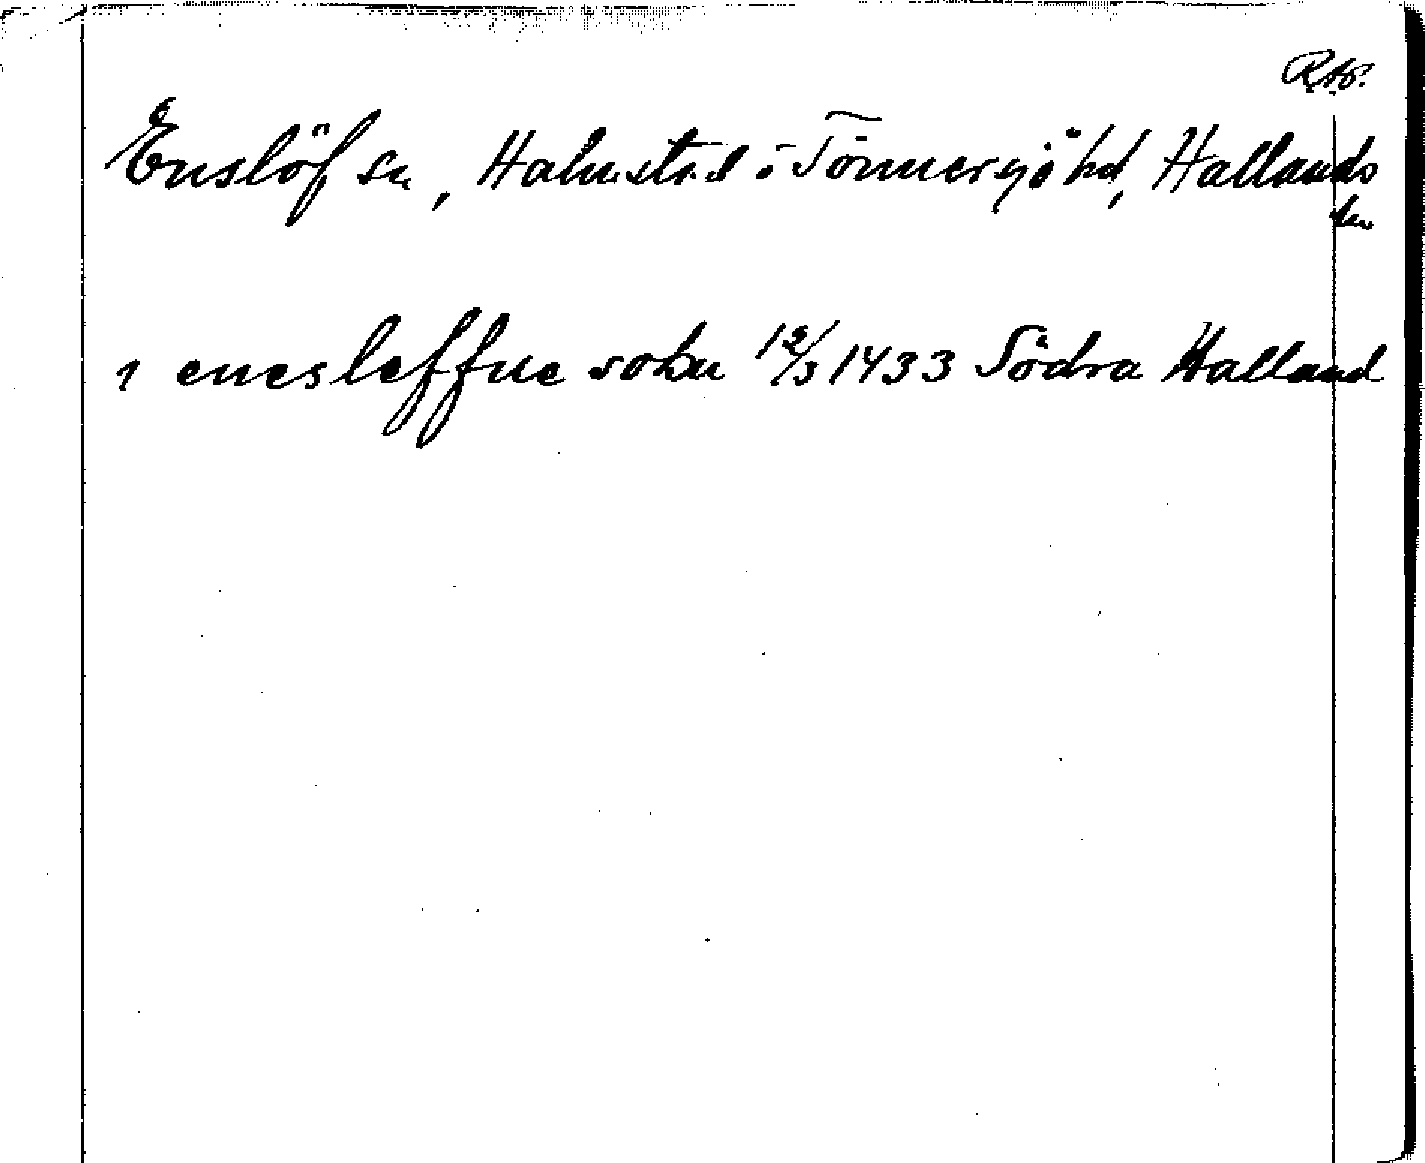 RAP.
Enslöf sn, Halmstad o Tönnersjö hd, Hallands
län
1 enesleffue sokn 12/3 1433 Södra Halland